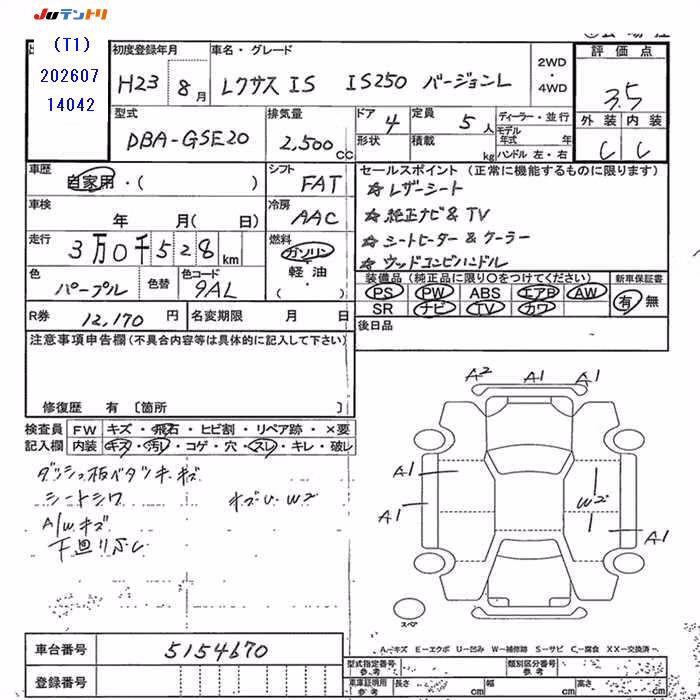 JUテントリ
(T1)
202607
14042
初度登録年月
H23 8月
車名・グレード
レクサス IS IS250 バージョンL
2WD
・
4WD
評価点
3.5
外装 内装
C C
型式
DBA-GSE20
排気量
2,500 CC
ドア 4
形状
定員 5人
積載 kg
ディーラー・並行
モデル年式 年
ハンドル 左・右
車歴
自家用・( )
シフト
FAT
セールスポイント (正常に機能するものに限ります)
☆ レザーシート
☆ 純正ナビ & TV
☆ シートヒーター & クーラー
☆ ウッドコンビハンドル
車検
年 月( 日)
冷房
AAC
走行
3万0千528km
燃料
ガソリン
軽油
( )
色
パープル
色替
色コード
9AL
装備品 (純正品に限り○をつけてください)
PS PW ABS エアB AW
SR ナビ TV カワ
新車保証書
有 無
R券 12,170円
名変期限 月 日
後日品
注意事項申告欄(不具合内容等は具体的に記入して下さい)
修復歴 有 〔箇所 〕
検査員 FW キズ・飛石・ヒビ割・リペア跡・×要
記入欄 内装 キズ・汚レ・コゲ・穴・スレ・キレ・破レ
ダッシュ板ベタツキ・キズ
シートシワ
キズU・W2
A/Wキズ
下回りサビ
A2 A1 A1
A1
A1
W2
A1
スペア
A－キズ E－エクボ U－凹み W－補修跡 S－サビ C－腐食 XX－交換済
車台番号
5154670
登録番号
型式指定番号
参考
類別区分番号
参考
車庫証明用
参考
長さ cm
幅 cm
高さ cm